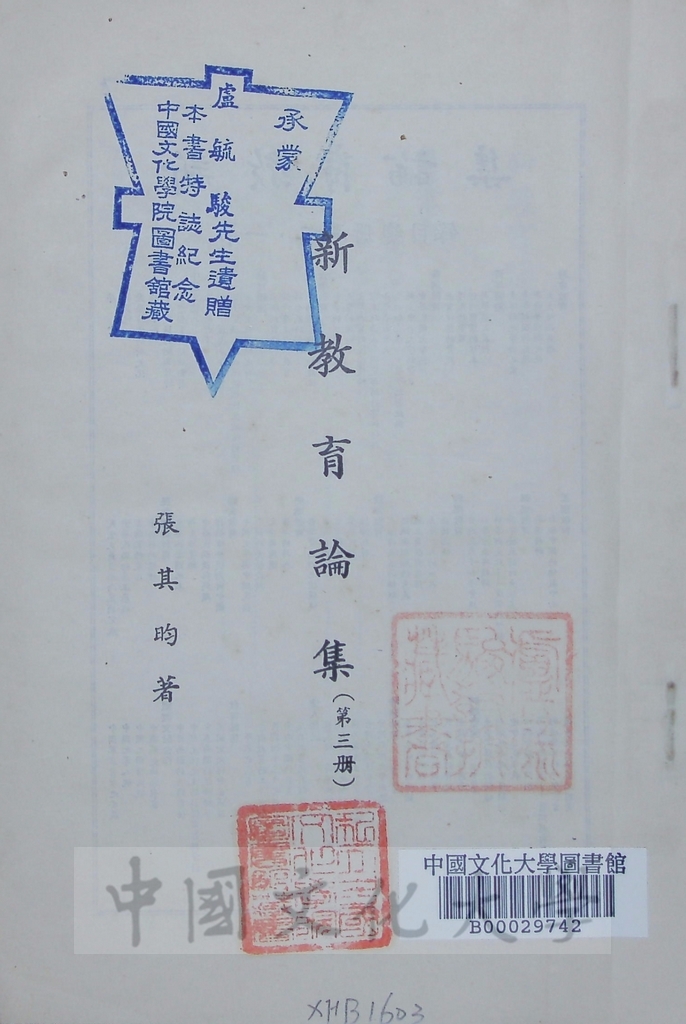 承蒙
盧毓駿先生遺贈
本書特誌紀念
中國文化學院圖書館藏
新教育論集（第三册）
張其昀著
中國文化大學圖書館
B00029742
中國文化大學
XHB1603